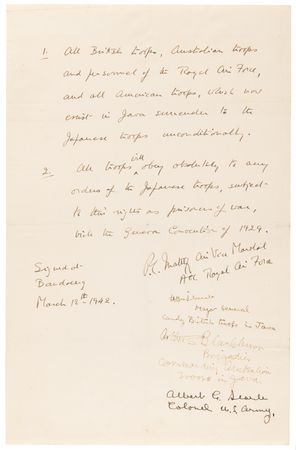 1. All British troops, Australian troops
and personnel of the Royal Air Force,
and all American troops, which now
exist in Java surrender to the
Japanese troops unconditionally.
2. All troops will obey absolutely to any
orders of the Japanese troops, subject
to their rights as prisoners of war,
with the Geneva Convention of 1929.
Signed at
Bandoeng
March 12th 1942.
P.C. Maltby Air Vice Marshal
AOC Royal Air Force
Major General
Comdg British troops in Java
Arthur S Blackburn
Brigadier
Commanding Australian
troops in Java
Albert C. Searle
Colonel U.S. Army.